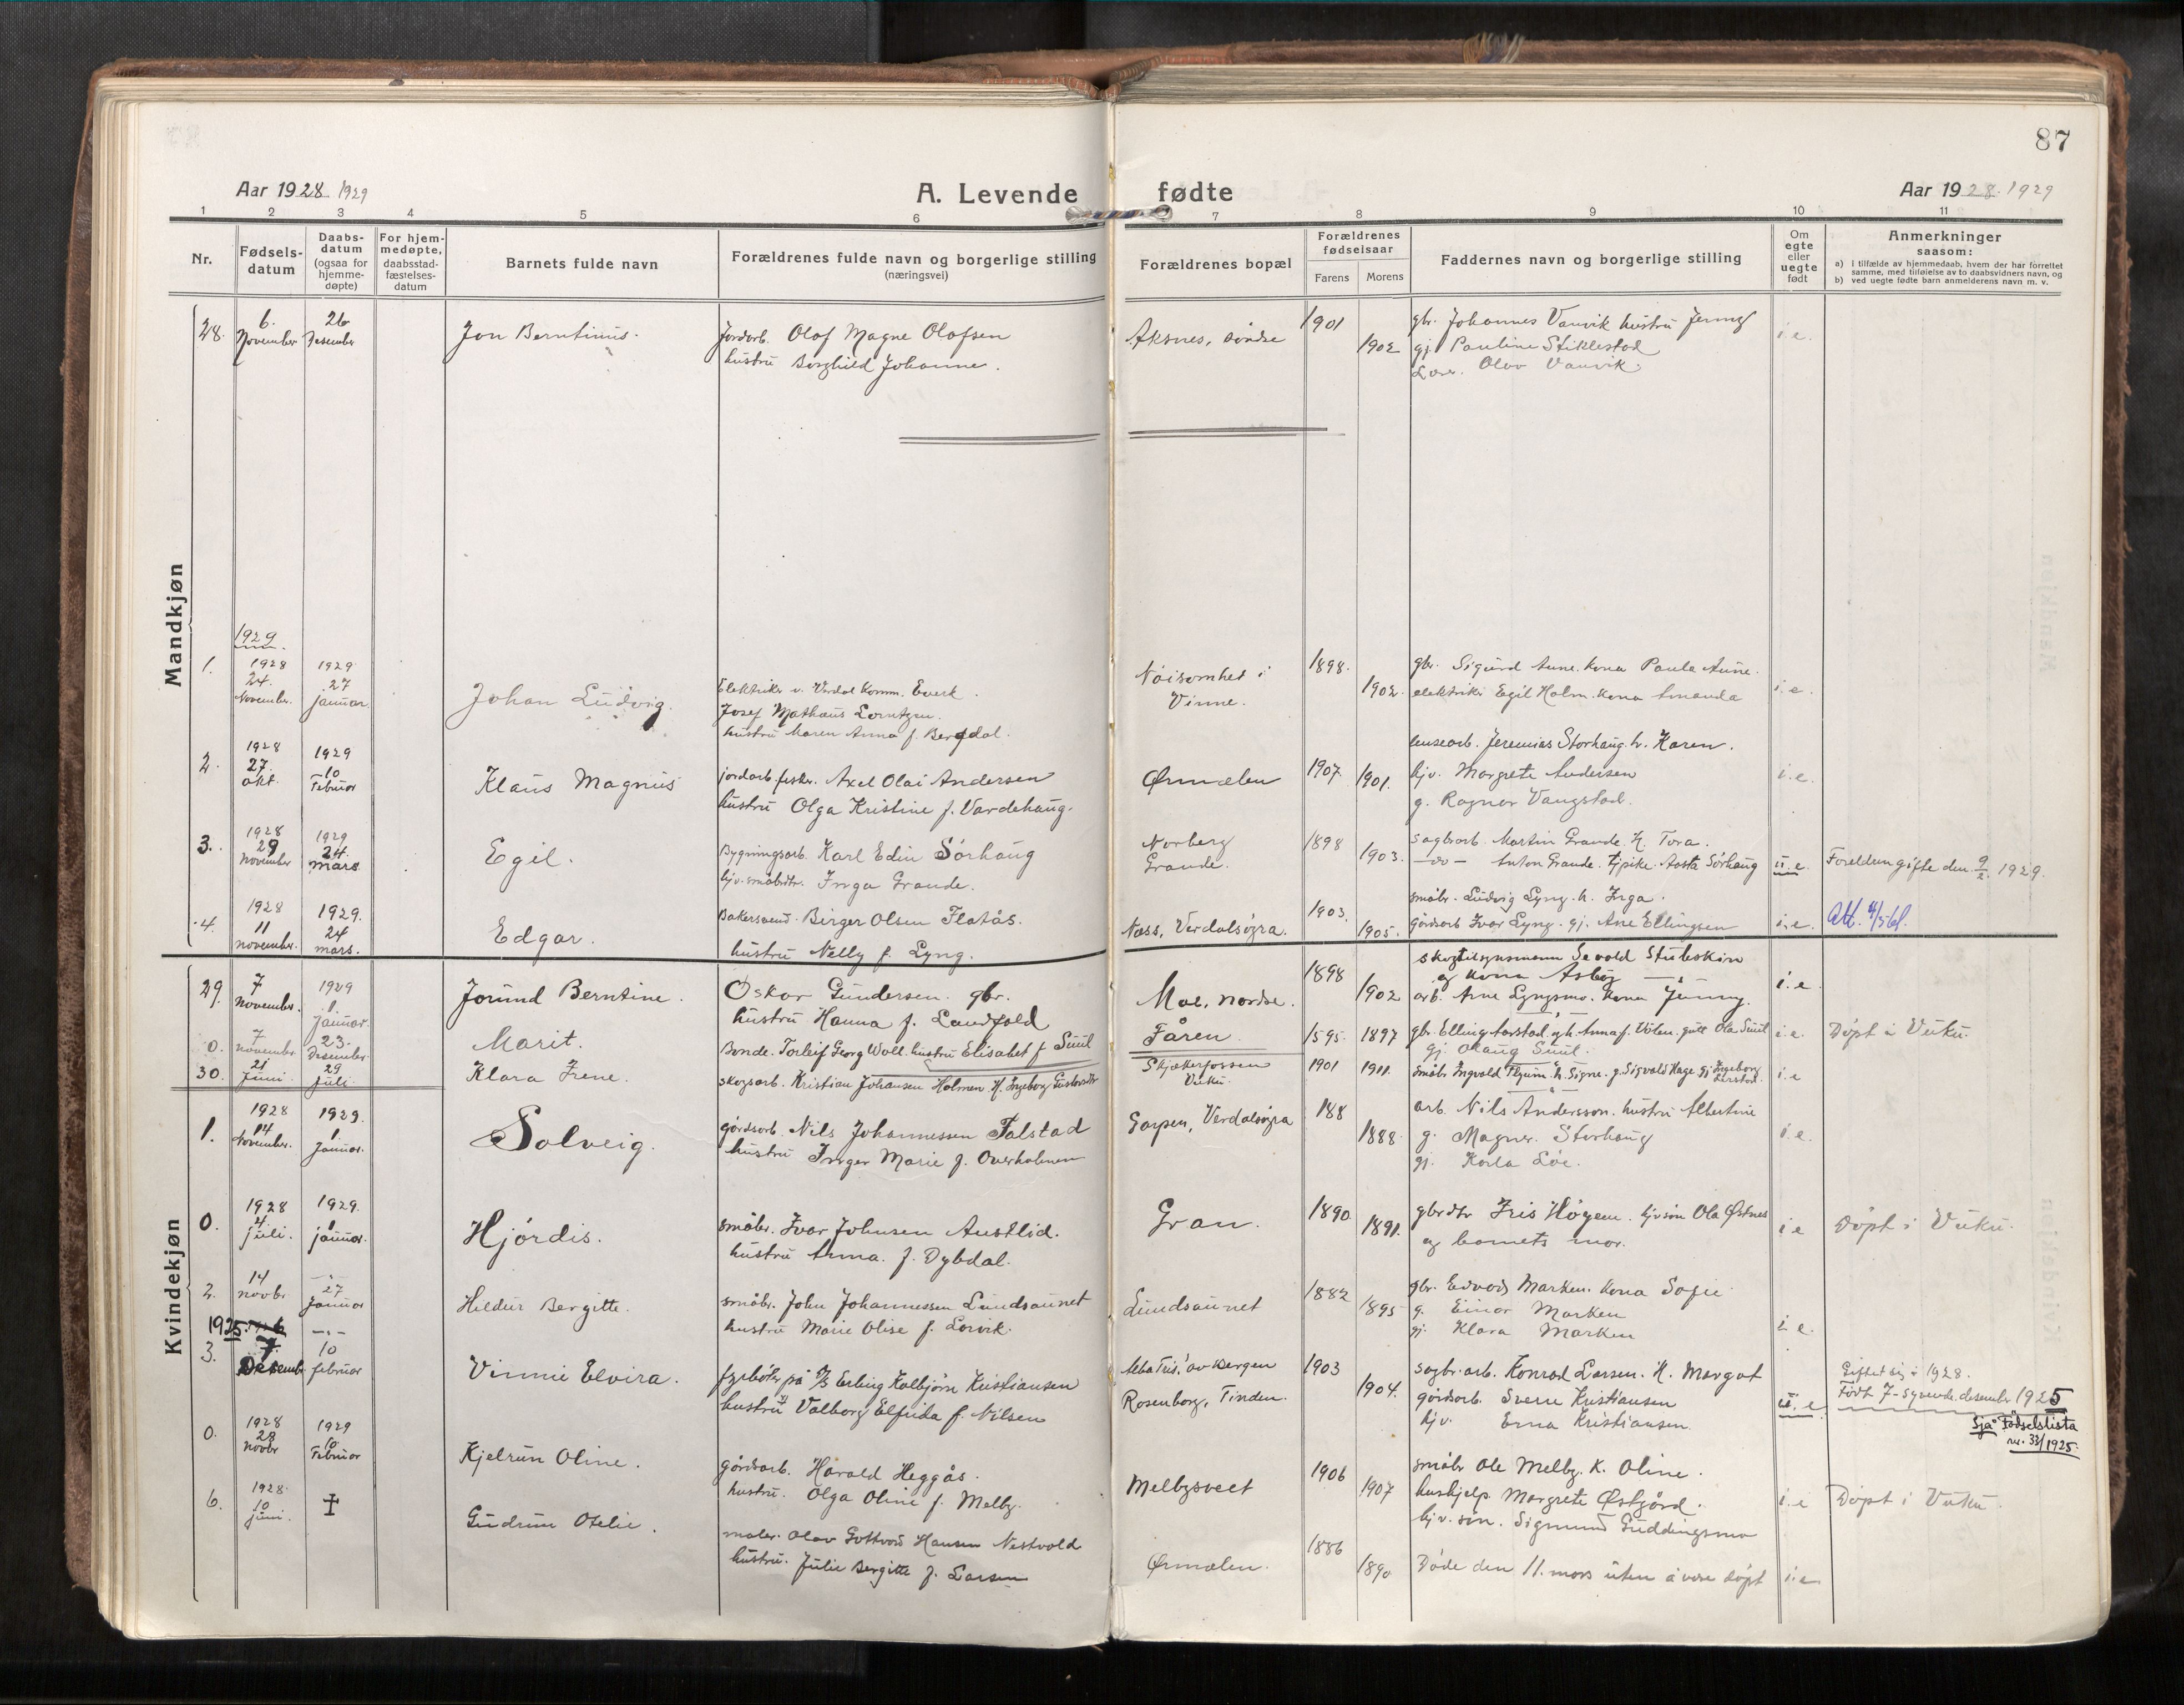 87
Aar 1928. 1929
A. Levende fødte
Aar 1928. 1929
1 2 3 4 5 6 7 8 9 10 11
Nr.
Fødsels-
datum
Daabs-
datum
(ogsaa for
hjemme-
døpte)
For hjem-
medøpte,
daabsstad-
fæstelses-
datum
Barnets fulde navn
Forældrenes fulde navn og borgerlige stilling
(næringsvei)
Forældrenes bopæl
Forældrenes
fødselsaar
Farens Morens
Faddernes navn og borgerlige stilling
Om
egte
eller
uegte
født
Anmerkninger
saasom:
a) i tilfælde av hjemmedaab, hvem der har forrettet
samme, med tilføielse av to daabsvidners navn, og
b) ved uegte fødte barn anmelderens navn m. v.
Mandkjøn
28. 6. November 26 Desember
Jon Berntinus.
Jordarb. Olaf Magne Olafsen
hustru Borghild Johanne.
Aksnes, søndre
1901 1902
gbr. Johannes Vanvik hustru Jenny
gj Pauline Stiklestad
Lær. Olav Vanvik.
i.e.
1929
1. 1928 24. November. 1929 27 januar.
Johan Ludvig.
Elektriker v. Verdal Komm. Everk.
Josef Mathäus Lorntzen.
hustru Maren Anna f. Bergdal.
Nöisomhet i
Vinne.
1898. 1902.
gbr. Sigurd Aune. kona Paula Aune.
elektriker Egil Holm. kona Amanda
i.e.
2. 1928 27. okt. 1929 10 Februar
Klaus Magnus
jordarb. fisker. Axel Olai Andersen
hustru Olga Kristine f. Vardehaug.
Ørmelen
1907. 1901.
lensearb. Jeremias Storhaug. h. Karen.
hjv. Margrete Andersen
g. Ragnar Vangstad.
i.e.
3. 1928 29 November 1929 24. mars
Egil.
Bygningsarb. Karl Edin Sörhaug
hjv. småbrdtr. Inga Grande.
Norberg
Grande.
1898 1903.
sagbrarb. Martin Grande. H. Tora.
—do— Anton Grande. tjpike. Aasta Sörhaug
u.e.
Foreldren gifte den 9/2. 1929.
4. 1928 11 november. 1929. 24 mars.
Edgar.
Bakersvend. Birger Olsen Flatås.
hustru Nelly f. Lyng.
Næss, Verdalsøra.
1903. 1905.
småbr. Ludvig Lyng. h. Inga.
Gårdsarb Ivar Lyng. gj. Ane Ellingsen
i.e.
Att. 4/5 61.
Kvindekjøn
29. 7 November. 1929 1. Januar.
Jorund Berntine.
Oskar Gundersen. gbr.
hustru Hanna f. Landfald
Moe, nordre.
1898 1902
skogtilsynsmann Sevald Stubskin
og kona Asbög
arb. Arne Lyngsmo. Kona Jenny.
i.e.
0. 7 November. 23. Desember
Marit.
Bonde. Torleif Georg Woll. hustru Elisabet f Suul
Fåren
1895. 1897
gbr. Elling Aarstad og h. Anna f. Volen. gutt Ola Suul
gj. Olaug Suul.
i.e
Döpt i Vuku.
30. 21 Juni. 29 Juli
Klara Irene.
skogsarb. Kristian Johansen Holmen H. Ingeborg Gustavsdtr
Skjækerfossen
Vuku.
1901 1911.
småbr Ingvald Flyum. h. Signe. g. Sigvald Hage gj. Ingeborg
Aarstad.
i.e
1. 1928 14 November. 1929. 1 Januar.
Solveig.
gårdsarb. Nils Johannessen Falstad
hustru Inger Marie f. Overholmen
Garpen, Verdalsøra
188 1888.
arb. Nils Andersson. hustru Albertine
g. Magne. Storhaug
gj. Karla Löe.
i.e.
0. 1928 4. juli. 1929. 1 januar.
Hjördis.
småbr. Ivar Johnsen Austlid.
hustru Anna. f. Dybdal.
Gran.
1890 1891.
gbrdtr Iris Högem. hjvsön Ola Østnes
og barnets mor.
i.e
Döpt i Vuku.
2. 14 novbr 27 Januar
Hildur Bergitte.
småbr. John Johannessen Lundsaunet
hustru Marie Olise f. Lorvik.
Lundsaunet
1882 1895
gbr. Edvard Marken. Kona Sofie
g. Einar Marken
gj. Klara Marken
i e.
3. 1925. 7 Desember 10 februar
Vinnie Elvira.
fyrböter på D/S Erling Kolbjörn Kristiansen
hustru Valborg Elfrida f. Nilsen
av Bergen
Rosenborg, Tinden.
1903 1904.
sagbr. arb. Konrad Larsen. H. Margot
gårdsarb. Sverre Kristiansen
hjv. Erna Kristiansen.
u. e.
Giftet sig i 1928.
Födt 7 - syvende. desember 1925
Sjå Födselslista
nr. 33/1925.
0. 1928 28 Novbr 1929 10 Februar
Kjelrun Oline.
gårdsarb. Harald Heggås.
hustru. Olga Oline f. Melby.
Melbysveet
1906 1907
småbr Ole Melby. K. Oline.
hushjelp. Margrete Østgård.
hjv. sön. Sigmund Guddingsmo
i.e
Döpt i Vuku.
6. 1928. 10 juni.
Gudrun Otelie.
maler. Olav Gottvard Hansen Nestvold
hustru. Julie Bergitte f. Larsen
Ørmelen.
1886 1890
Döde den 11. mars uten å være döpt
i.e